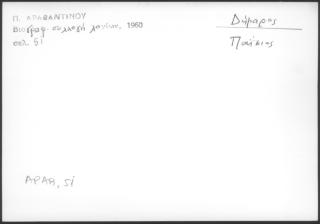 Π. ΑΡΑΒΑΝΤΙΝΟΥ
Βιογραφ. συλλογή λογίων, 1960
σελ. 51
Δόμαρος
Παΐσιος
ΑΡΑΒ, 51